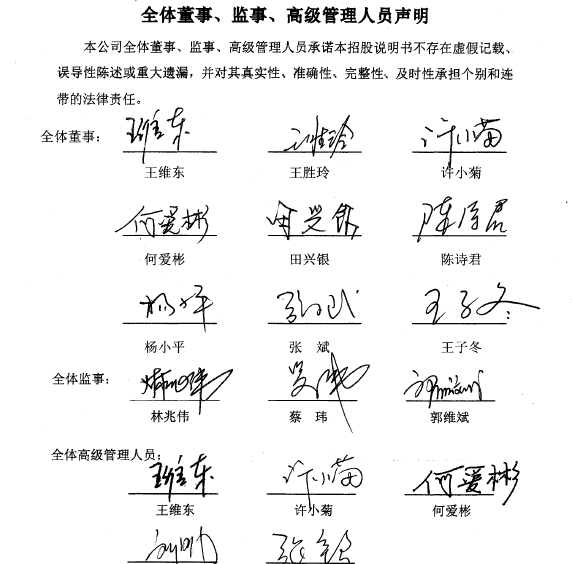 全体董事、监事、高级管理人员声明
本公司全体董事、监事、高级管理人员承诺本招股说明书不存在虚假记载、
误导性陈述或重大遗漏，并对其真实性、准确性、完整性、及时性承担个别和连
带的法律责任。
全体董事： 王维东 王胜玲 许小菊
王维东 王胜玲 许小菊
何爱彬 田兴银 陈诗君
何爱彬 田兴银 陈诗君
杨小平 张斌 王子冬
杨小平 张 斌 王子冬
全体监事：
林兆伟 蔡 玮 郭维斌
全体高级管理人员：
王维东 许小菊 何爱彬
王维东 许小菊 何爱彬